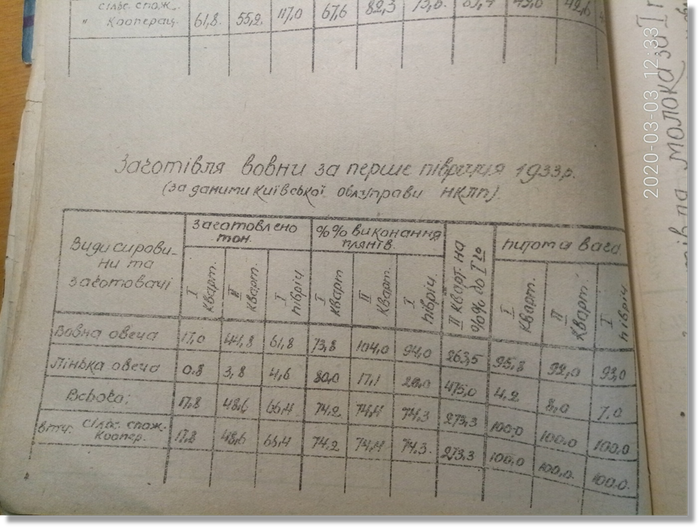 сільс. спож.
" кооперац. 61,8 55,2 117,0 67,6 82,3
Заготівля вовни за перше півріччя 1933 р.
(за даними Київської облуправи НКЛП)
Види сировини та заготовачі
Заготовлено тон.
%% виконання плянів.
II кварт. на %% до I го
питома вага
I кварт. II кварт. I півріч. I кварт. II кварт. I півріч. I кварт. II кварт. I півріч.
Вовна овеча 17,0 44,8 61,8 73,8 104,0 94,0 263,5 95,8 92,0 93,0
Линька овеча 0,8 3,8 4,6 80,0 17,1 475,0 4,2 8,0 7,0
Всього: 17,8 48,6 66,4 74,2 74,4 74,3 273,3 100,0 100,0 100,0
в тч: сільс. спож. коопер. 17,8 48,6 66,4 74,2 74,4 74,3 273,3 100,0 100,0 100,0
молока за I
2020-03-03 12:33